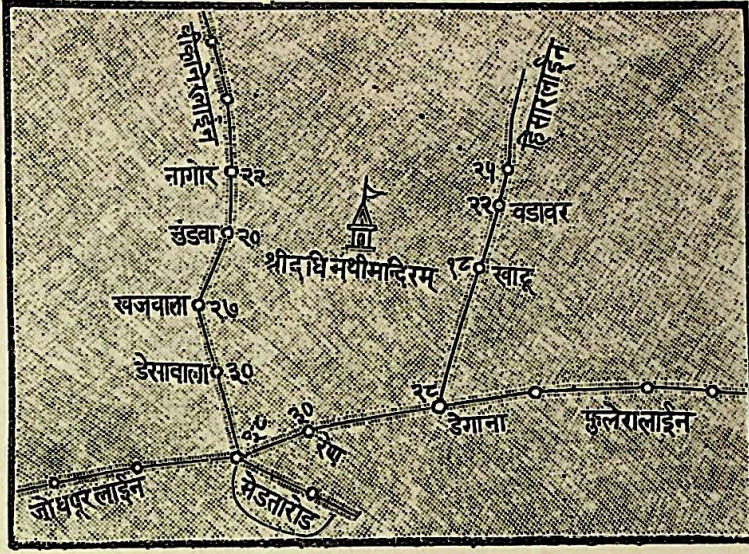 बीकानेरलाईन
हिसारलाईन
नागोर २२
२५
२२ वडावर
मुंडवा २०
श्रीदधिमथीमन्दिरम्
१८ खाटू
खजवाला २७
डेसावाला ३०
२८
डेगाना
फुलेरालाईन
३०
रेण
जोधपूर लाईन
मेडतारोड